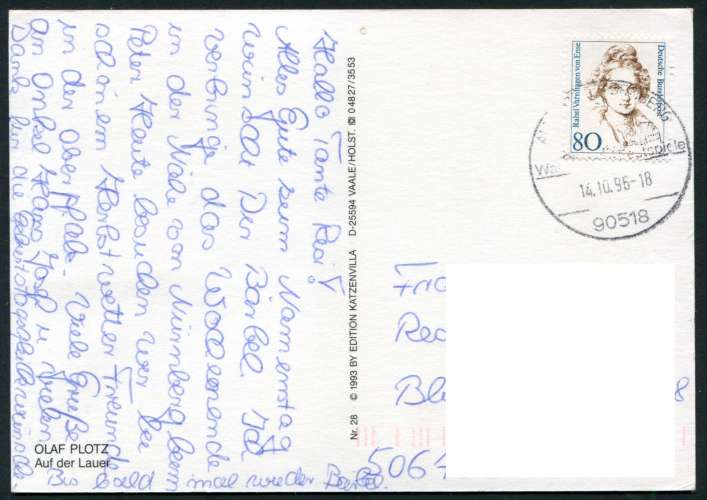 Hallo Tante Resi!
Alles Gute zum Namenstag
wünscht Dir Bärbel. Ich
verbringe das Wochenende
in der Nähe von Nürnberg beim
Peter. Heute besuchen wir bei
schönem Herbstwetter Freunde
in der Oberpfalz. Viele Grüße
an Onkel Hans, Josef u. vielen
Dank für die Geburtstagsglückwünsche.
Bis bald mal wieder Bärbel.
OLAF PLOTZ
Auf der Lauer
Nr. 28 © 1993 BY EDITION KATZENVILLA D-25594 VAALE/HOLST. 04827/3553
Deutsche Bundespost
Rahel Varnhagen von Ense
80
14.10.96-18
90518
Bl
8
5064